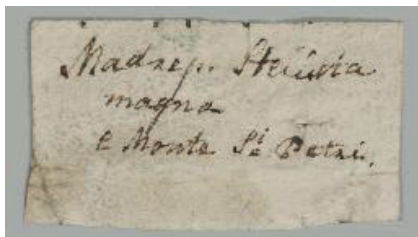 Madrep. Stellaria
magna
e Monte Si Petri.